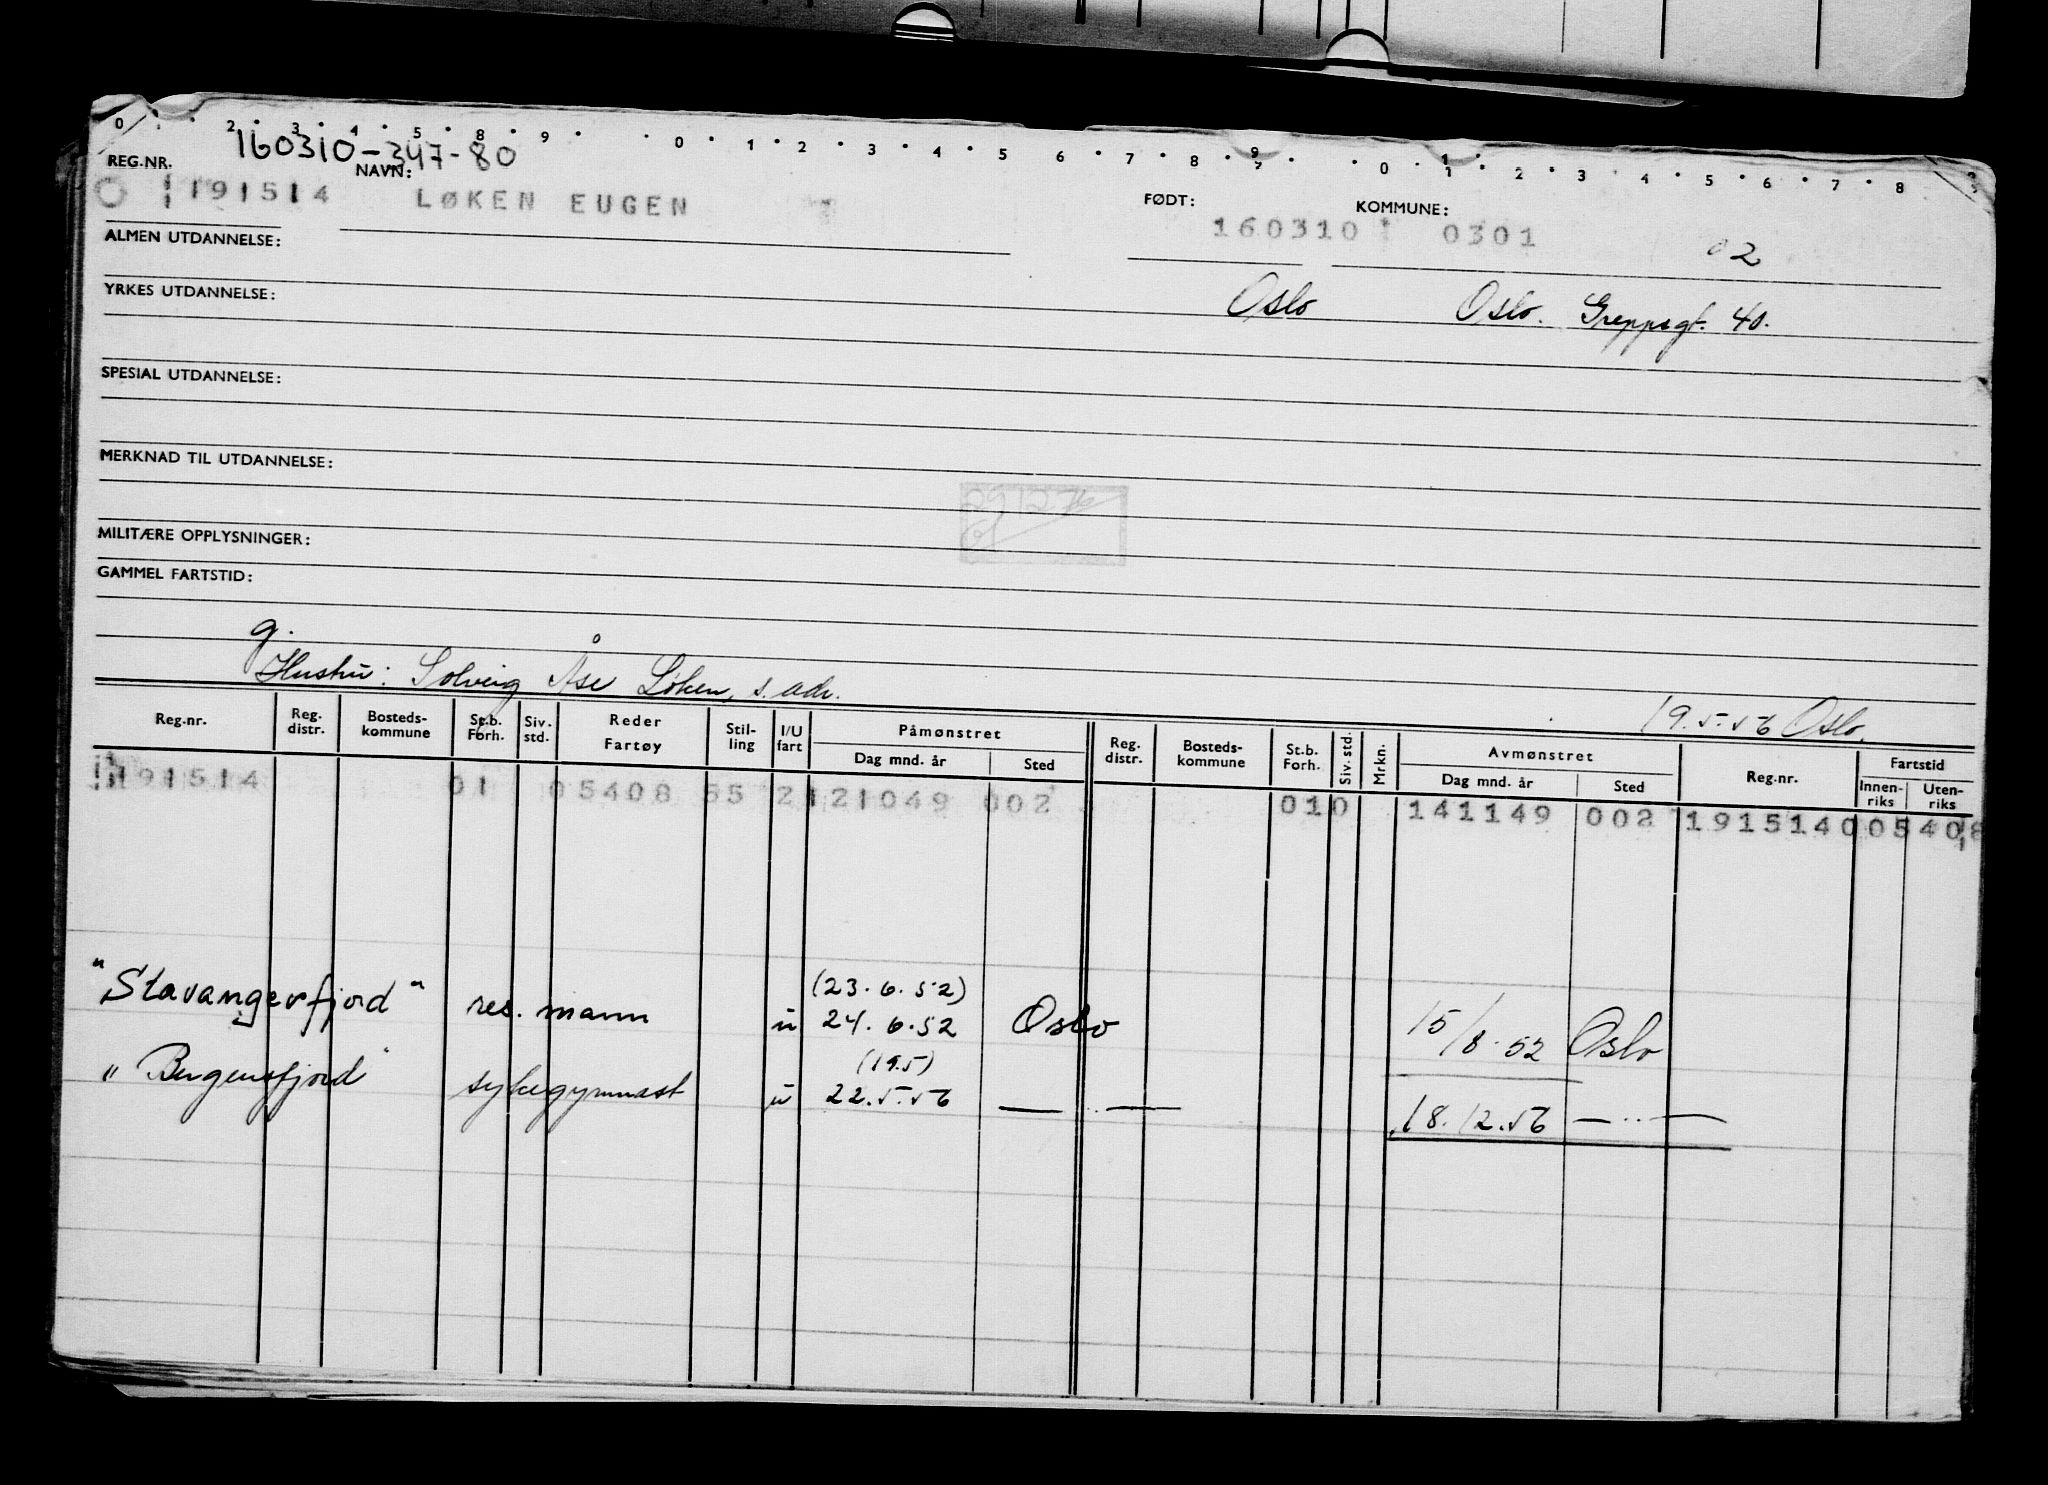 0 2 3 4 5 8 9 0 1 2 3 4 5 6 7 8 9 0 1 2 3 4 5 6 7 8
160310-347-80
REG.NR. NAVN: FØDT: KOMMUNE:
191514 LØKEN EUGEN 160310 0301
02
ALMEN UTDANNELSE:
YRKES UTDANNELSE: Oslo Oslo. Greppsgt. 40.
SPESIAL UTDANNELSE:
MERKNAD TIL UTDANNELSE:
291276
MILITÆRE OPPLYSNINGER:
GAMMEL FARTSTID:
g.
Hustru: Solveig Åse Løken, s. adr.
19.5.56 Oslo.
Reg.nr. Reg. distr. Bosteds-kommune St.b. Forh. Siv. std. Reder Fartøy Stil-ling I/U fart Påmønstret Dag mnd. år Sted Reg. distr. Bosteds-kommune St.b. Forh. Siv. std. Mrkn. Avmønstret Dag mnd. år Sted Reg.nr. Fartstid Innen-riks Uten-riks
191514 01 05408 55 2 121049 002 010 141149 002 1915140 05408
(23.6.52)
"Stavangerfjord" res. mann u 24.6.52 Oslo 15/8.52 Oslo
(19.5)
"Bergensfjord" sykegymnast u 22.5.56 — " — 18.12.56 — " —